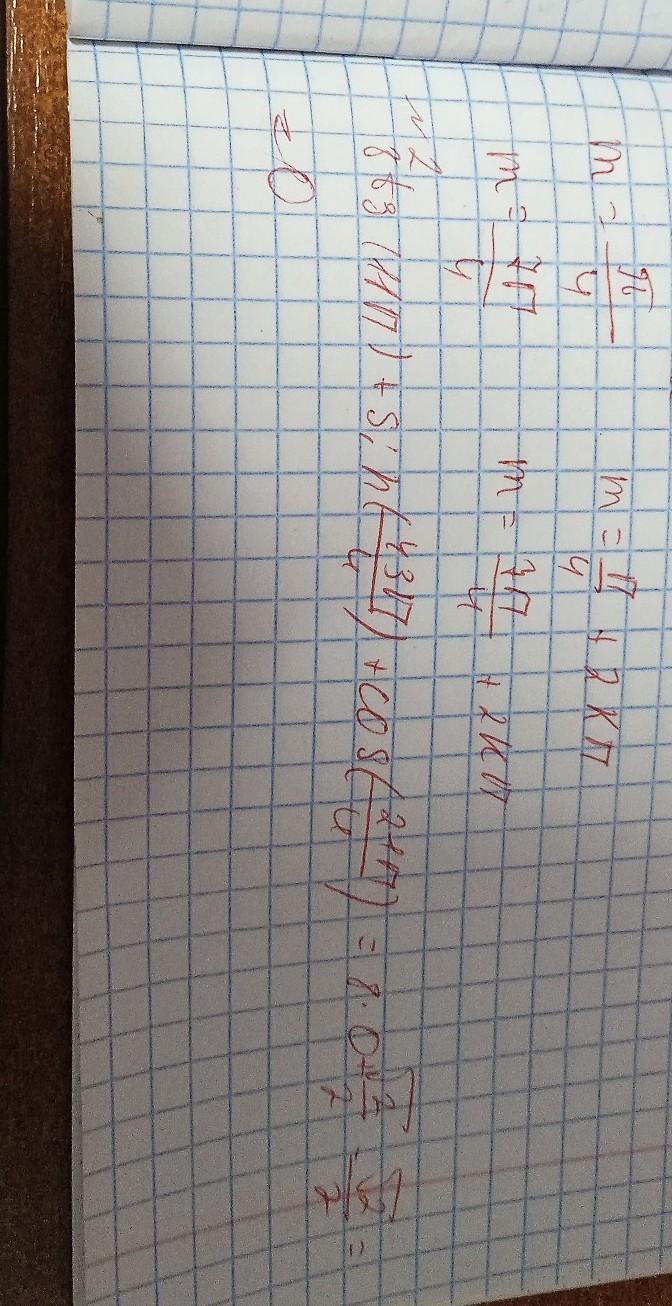 m = π/4 m = π/4 + 2kπ
m = 3π/4 m = 3π/4 + 2kπ
№2
8 tg (11π) + sin( /4) + cos( /4) = 8·0 + √2/2 - √2/2 =
= 0